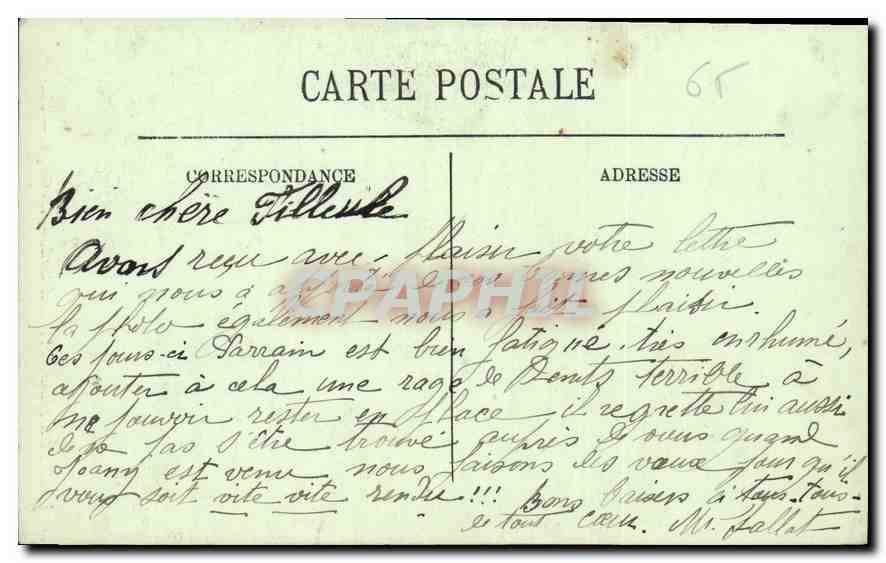 65
CARTE POSTALE
CORRESPONDANCE
ADRESSE
Bien chère Filleule
Avons reçu avec plaisir votre lettre
qui nous a apporté de vos bonnes nouvelles
la photo également nous a fait plaisir.
Ces jours-ci Parrain est bien fatigué très enrhumé,
ajouter à cela une rage de Dents terrible à
ne pouvoir rester en place il regrette lui aussi
de pas s'être trouvé auprès de vous quand
Joanny est venu nous faisons des vœux pour qu'il
vous soit vite vite rendu!!! Bons baisers à tous-tous-
de tout cœur. Mr.
CPAPHIL